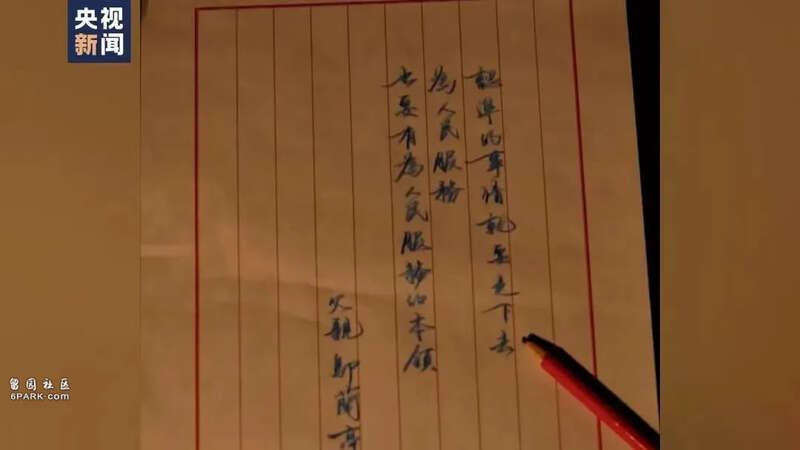 央视
新闻
認準的事情就要走下去
為人民服務
也要有為人民服務的本領
父親 邬蘭亭
留园社区
6PARK.COM